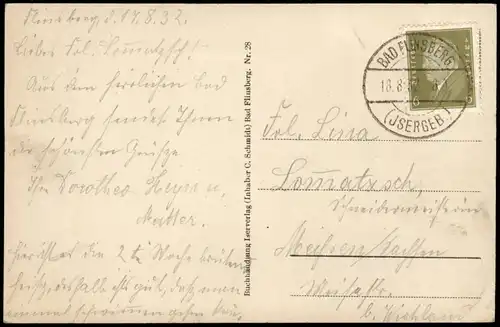 Flinsberg d. 17.8.32.
Liebe Frl. Lomatzsch!
Aus dem herrlichen Bad
Flinsberg sendet Ihnen
die schönsten Grüße
Ihre Dorothea u.
Mutter.
Hier ist es die 2te Woche
heiß, deshalb ist gut, daß man
mal schwimmen gehen kann.
Buchhandlung Leerverlag (Inhaber C. Schmidt) Bad Flinsberg. Nr. 28
BAD FLINSBERG
18.8.
(JSERGEB.)
6
Frl. Lina
Lomatzsch,
Schneidermeisterin
Meißen Sachsen